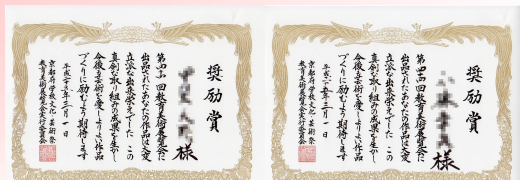 奨励賞
様
第四十回教育美術展覧会に
出品されたあなたの作品は大変
立派な出来栄えでした この
真剣な取り組みの成果を生かし
今後も芸術を愛しよりよい作品
づくりに励むよう期待します
平成二十五年三月一日
京都府学校文化芸術祭
教育美術展覧会実行委員会
奨励賞
様
第四十回教育美術展覧会に
出品されたあなたの作品は大変
立派な出来栄えでした この
真剣な取り組みの成果を生かし
今後も芸術を愛しよりよい作品
づくりに励むよう期待します
平成二十五年三月一日
京都府学校文化芸術祭
教育美術展覧会実行委員会